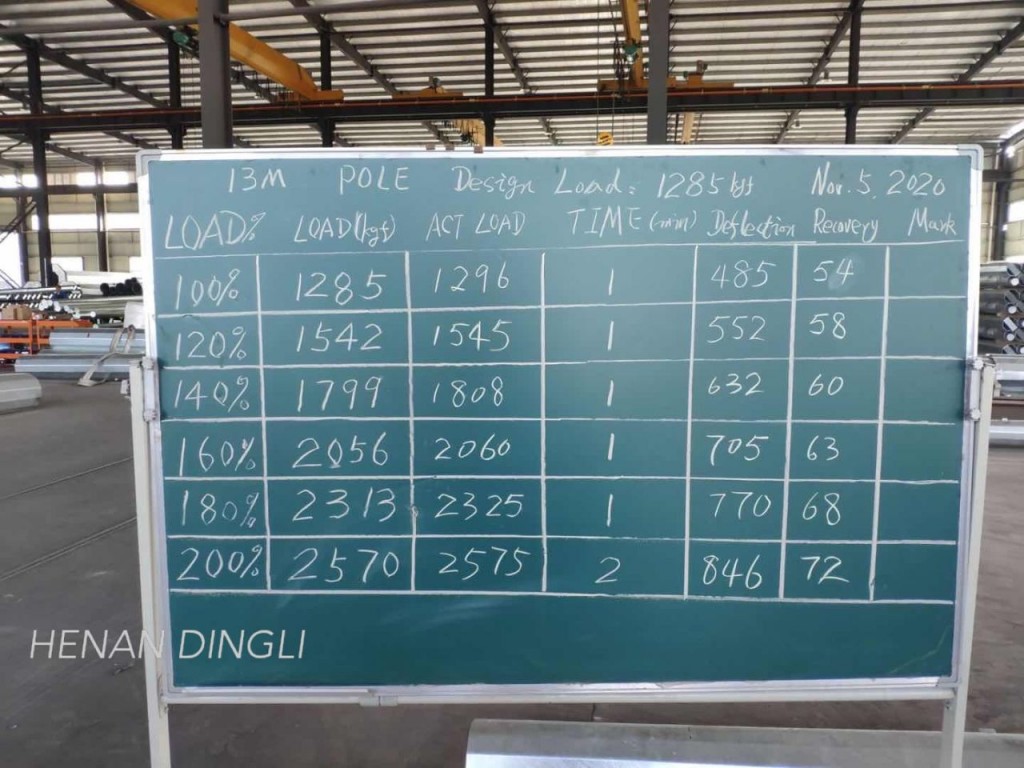 13M POLE Design Load: 1285kgf Nov. 5, 2020
LOAD% LOAD(kgf) ACT LOAD TIME (min) Deflection Recovery Mark
100% 1285 1296 1 485 54
120% 1542 1545 1 552 58
140% 1799 1808 1 632 60
160% 2056 2060 1 705 63
180% 2313 2325 1 770 68
200% 2570 2575 2 846 72
HENAN DINGLI